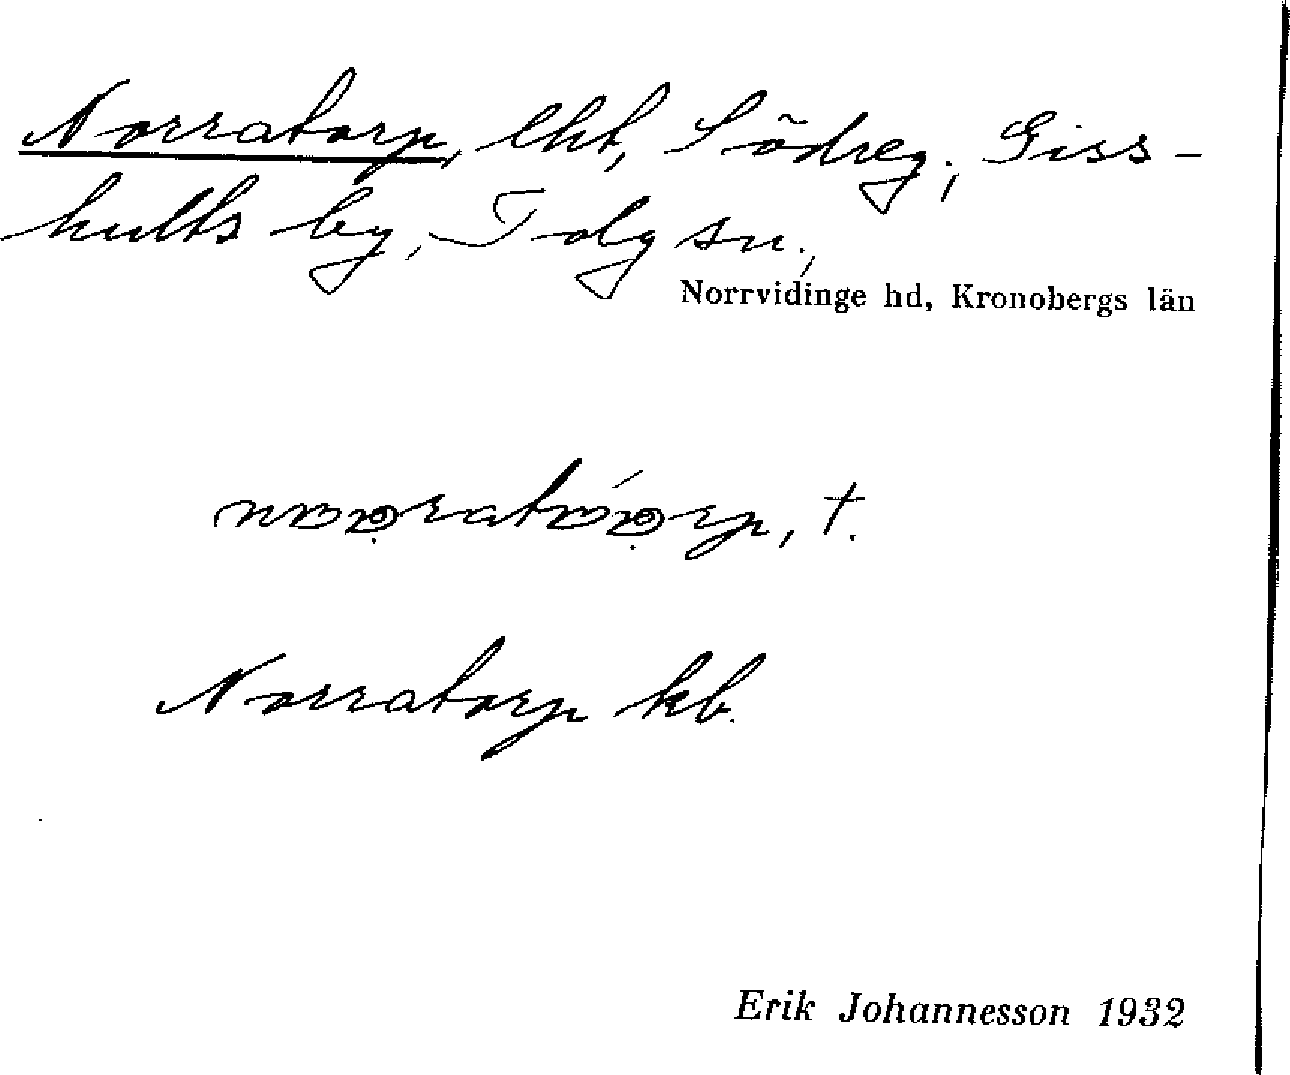 Norratorp, lht, Södreg., Giss-
hults by, Tolg sn.,
Norrvidinge hd, Kronobergs län
†.
Norratorp kb.
Erik Johannesson 1932